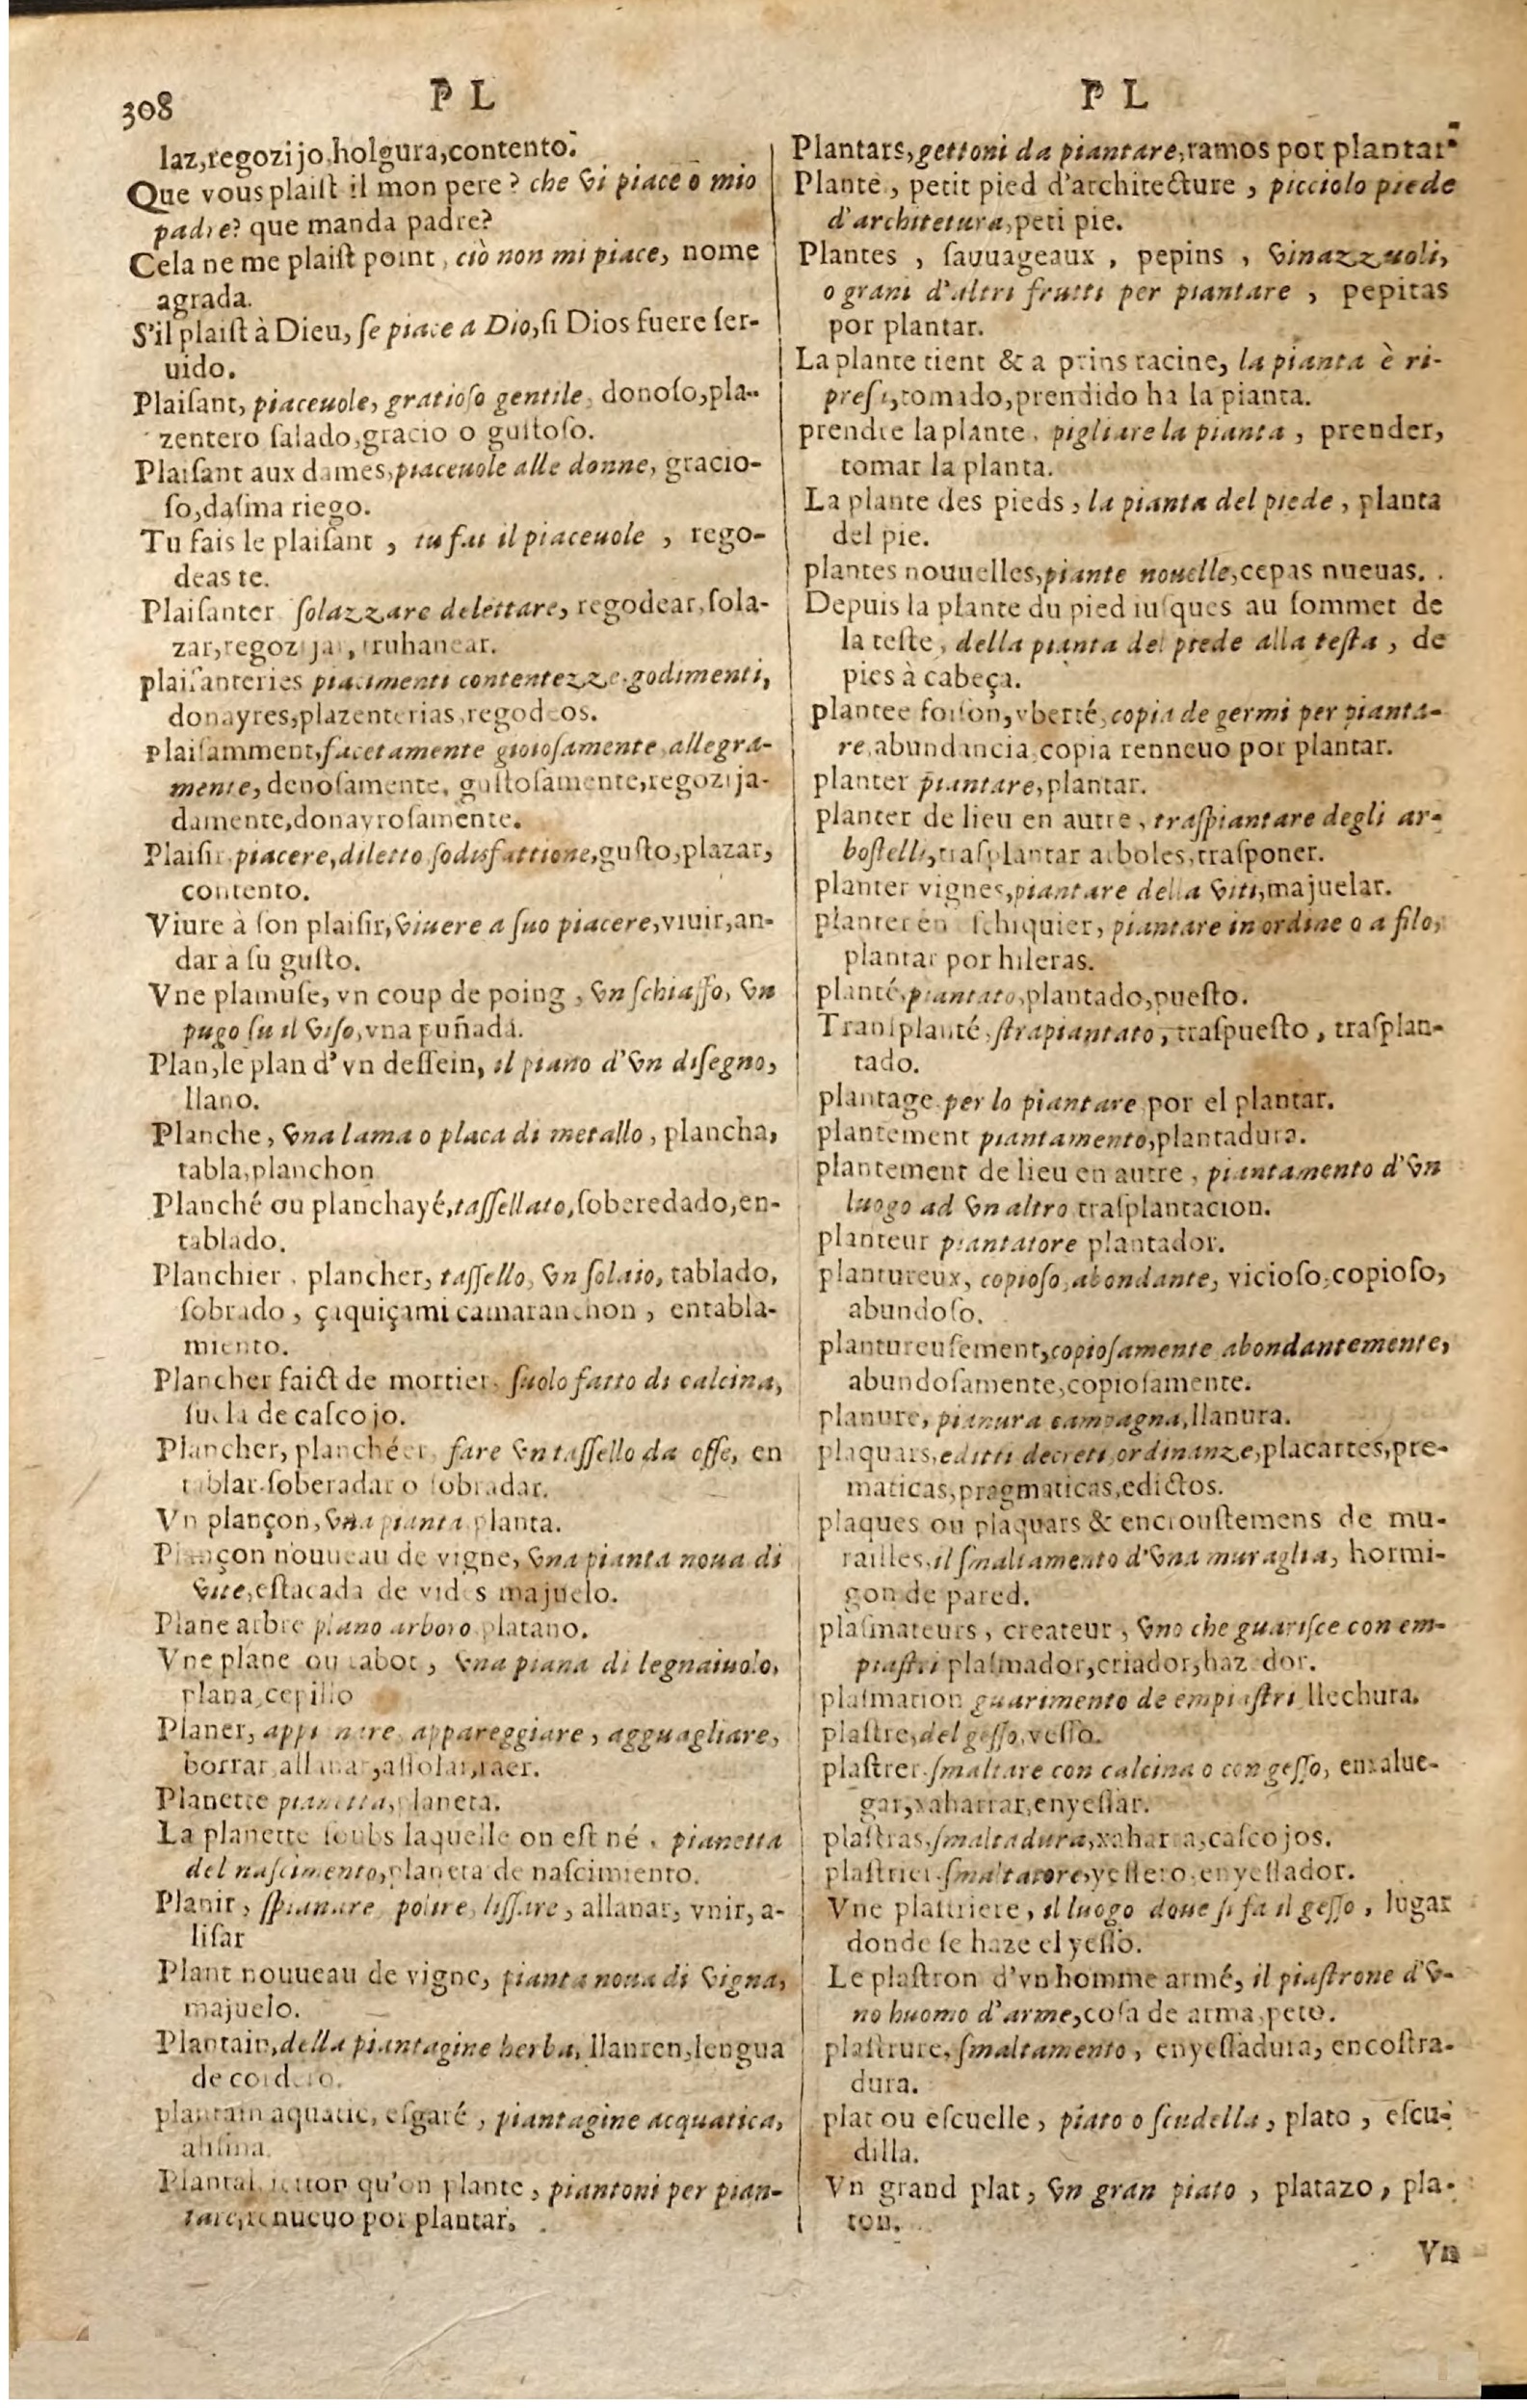 308
P L
laz,regozijo,holgura,contento.
Que vous plaiſt il mon pere? che vi piace o mio
padre? que manda padre?
Cela ne me plaiſt point, ciò non mi piace, nome
agrada.
S'il plaiſt à Dieu, ſe piace a Dio,ſi Dios fuere ſer-
uido.
Plaiſant, piaceuole, gratioſo gentile, donoſo,pla-
zentero ſalado,gracio o guſtoſo.
Plaiſant aux dames,piaceuole alle donne, gracio-
ſo,daſma riego.
Tu fais le plaiſant, tu fai il piaceuole, rego-
deas te.
Plaiſanter ſolazzare delettare, regodear,ſola-
zar,regozijar,truhanear.
plaiſanteries piacimenti contentezze.godimenti,
donayres,plazenterias,regodeos.
plaiſamment,facetamente gioioſamente,allegra-
mente, denoſamente, guſtoſamente,regozija-
damente,donayroſamente.
Plaiſir piacere,diletto ſodisfattione,guſto,plazar,
contento.
Viure à ſon plaiſir,viuere a ſuo piacere,viuir,an-
dar a ſu guſto.
Vne plamuſe, vn coup de poing, vn ſchiaffo, vn
pugo ſu il viſo,vna puñada.
Plan,le plan d'vn deſſein, il piano d'vn diſegno,
llano.
Planche, vna lama o placa di metallo, plancha,
tabla,planchon
Planché ou planchayé,taſſellato,ſoberedado,en-
tablado.
Planchier, plancher, taſſello, vn ſolaio, tablado,
ſobrado, çaquiçami camaranchon, entabla-
miento.
Plancher faict de mortier, ſuolo fatto di calcina,
ſuela de caſcojo.
Plancher, planchéer, fare vn taſſello da oſſe, en
tablar.ſoberadar o ſobradar.
Vn plançon, vna pianta planta.
Plançon nouueau de vigne, vna pianta noua di
vite,eſtacada de vides majuelo.
Plane arbre plano arboro platano.
Vne plane ou rabot, vna piana di legnaiuolo,
plana,cepillo
Planer, appianare, appareggiare, agguagliare,
borrar,allanar,aſſolar,raer.
Planette pianetta,planeta.
La planette ſoubs laquelle on eſt né, pianetta
del naſcimento,planeta de naſcimiento.
Planir, ſpianare polire,liſſare, allanar, vnir, a-
liſar
Plant nouueau de vigne, pianta noua di vigna,
majuelo.
Plantain,della piantagine herba, llanten,lengua
de cordero.
plantain aquatic, eſgaré, piantagine acquatica,
aliſma.
Plantal jetton qu'on plante, piantoni per pian-
tare,renueuo por plantar.
P L
Plantars,gettoni da piantare,ramos por plantar.
Plante, petit pied d'architecture, picciolo piede
d'architetura,peti pie.
Plantes, ſauuageaux, pepins, vinazzuoli,
o grani d'altri frutti per piantare, pepitas
por plantar.
La plante tient & a prins racine, la pianta è ri-
preſa,tomado,prendido ha la pianta.
prendre la plante, pigliare la pianta, prender,
tomar la planta.
La plante des pieds, la pianta del piede, planta
del pie.
plantes nouuelles,piante nouelle,cepas nueuas.
Depuis la plante du pied iuſques au ſommet de
la teſte, della pianta del piede alla teſta, de
pies à cabeça.
plantee foiſon,vberté,copia de germi per pianta-
re,abundancia,copia renneuo por plantar.
planter piantare,plantar.
planter de lieu en autre, traſpiantare degli ar-
boſtelli,traſplantar arboles,traſponer.
planter vignes,piantare della viti,majuelar.
planter en ſchiquier, piantare in ordine o a filo,
plantar por hileras.
planté,piantato,plantado,pueſto.
Tranſplanté,ſtrapiantato, traſpueſto, traſplan-
tado.
plantage per lo piantare por el plantar.
plantement piantamento,plantadura.
plantement de lieu en autre, piantamento d'vn
luogo ad vn altro traſplantacion.
planteur piantatore plantador.
plantureux, copioſo,abondante, vicioſo,copioſo,
abundoſo.
plantureuſement,copioſamente abondantemente,
abundoſamente,copioſamente.
planure, pianura campagna,llanura.
plaquars,editti decreti,ordinanze,placartes,pre-
maticas,pragmaticas,edictos.
plaques ou plaquars & encrouſtemens de mu-
railles,il ſmaltamento d'vna muraglia, hormi-
gon de pared.
plaſmateurs, createur, vno che guariſce con em-
piaſtri plaſmador,criador,hazedor.
plaſmation guarimento de empiaſtri llechura.
plaſtre,del geſſo,yeſſo.
plaſtrer ſmaltare con calcina o con geſſo, enxalue-
gar,xaharrar,enyeſſar.
plaſtras,ſmaltadura,xaharra,caſcojos.
plaſtrier ſmaltatore,yeſſero,enyeſſador.
Vne plaſtriere, il luogo doue ſi fa il geſſo, lugar
donde ſe haze el yeſſo.
Le plaſtron d'vn homme armé, il piaſtrone d'v-
no huomo d'arme,coſa de arma,peto.
plaſtrure,ſmaltamento, enyeſſadura, encoſtra-
dura.
plat ou eſcuelle, piato o ſcudella, plato, eſcu-
dilla.
Vn grand plat, vn gran piato, platazo, pla-
ton.
Vn